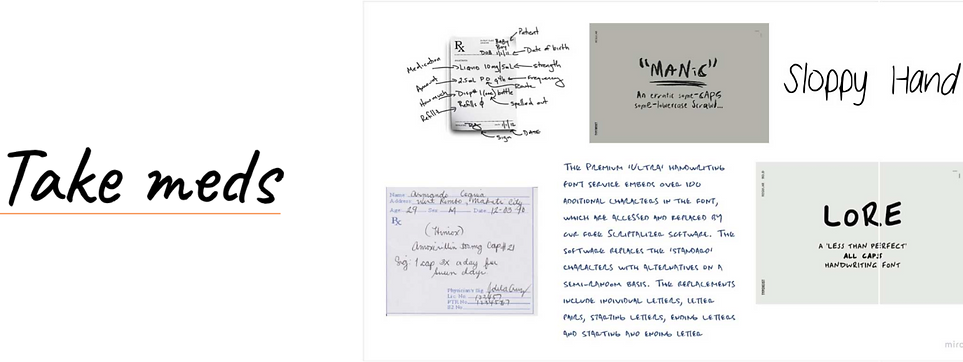 Take meds
Rx
Patient
Date of birth
DOB 1/1/11
Medication
Liquid 10mg/5mL
strength
Amount
2.5mL PO q4h
Frequency
Route
How much
Disp# 1 (one) bottle
Spelled out
Refills
Refills 0
Sign
DATE
"MANiC"
An erratic some-CAPS
some-lowercase Scrawl...
Sloppy Hand
Name
Address
Age 29 Sex M Date
Rx
Amoxicillin
Sig: 1 cap 3x a day for
seven days
Physician's Sig
Lic No
PTR No
S2 No
The Premium 'Ultra' handwriting
font service embeds over 100
additional characters in the font,
which are accessed and replaced by
our free Scriptalizer software. The
software replaces the 'standard'
characters with alternatives on a
semi-random basis. The replacements
include individual letters, letter
pairs, starting letters, ending letters
and starting and ending letter
LoRE
A 'LESS THAN PERFECT'
ALL CAPS
HANDWRITING FONT
miro